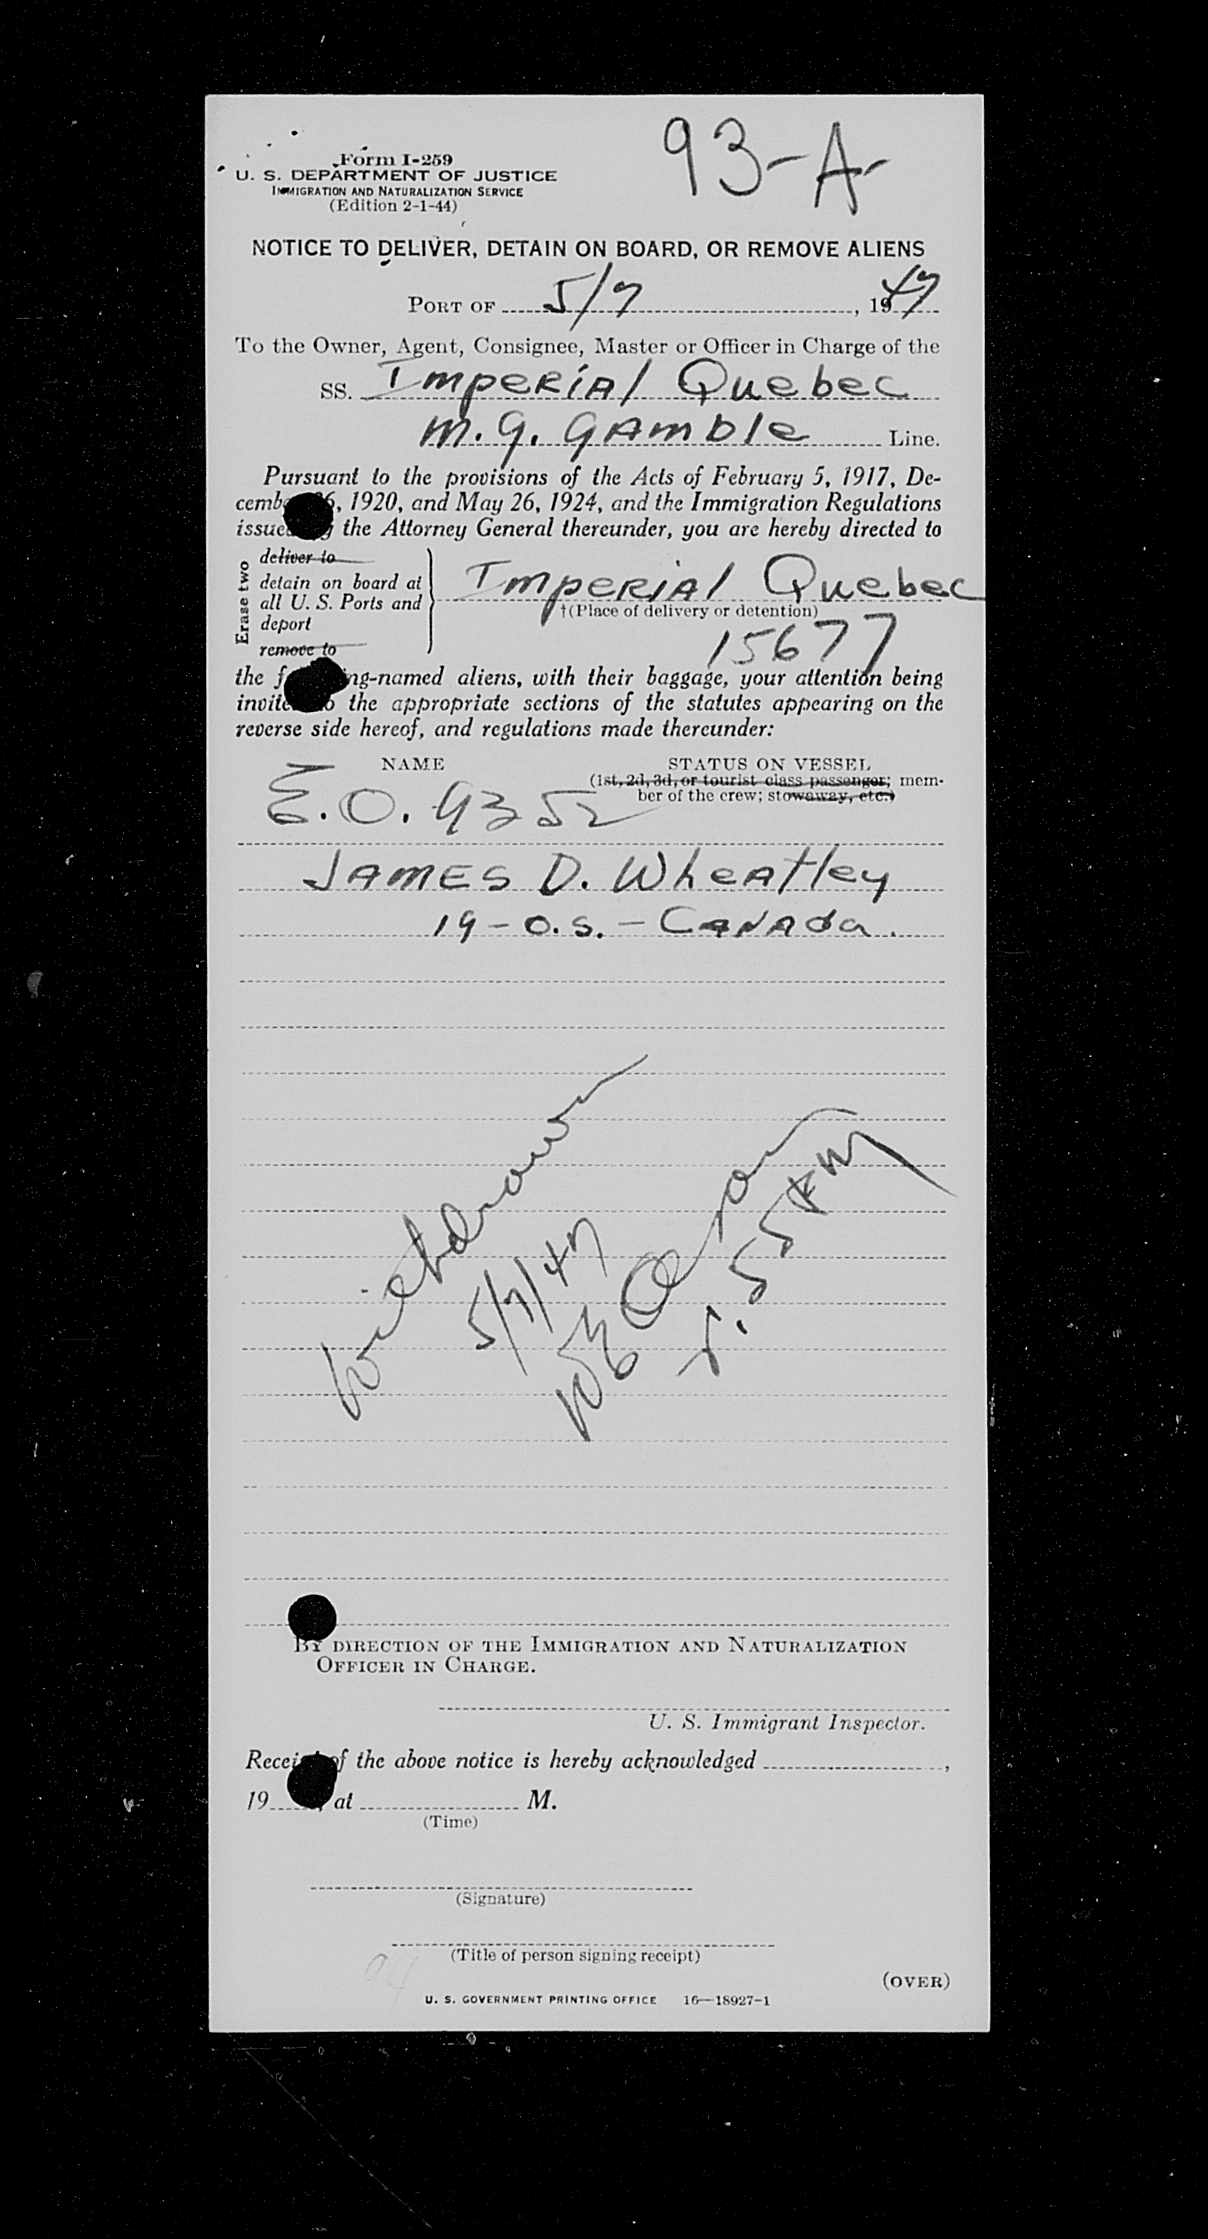 93-A-
Form I-259
U. S. DEPARTMENT OF JUSTICE
IMMIGRATION AND NATURALIZATION SERVICE
(Edition 2-1-44)
NOTICE TO DELIVER, DETAIN ON BOARD, OR REMOVE ALIENS
PORT OF 5/7, 1947
To the Owner, Agent, Consignee, Master or Officer in Charge of the
SS. Imperial Quebec
M.G. Gamble Line.
Pursuant to the provisions of the Acts of February 5, 1917, De-
cemb 6, 1920, and May 26, 1924, and the Immigration Regulations
issue the Attorney General thereunder, you are hereby directed to
Erase two
deliver to
detain on board at
all U. S. Ports and
deport
remove to
Imperial Quebec
†(Place of delivery or detention)
15677
the f ng-named aliens, with their baggage, your attention being
invite the appropriate sections of the statutes appearing on the
reverse side hereof, and regulations made thereunder:
NAME STATUS ON VESSEL
(1st, 2d, 3d, or tourist class passenger; mem-
ber of the crew; stowaway, etc.)
E.O. 9352
James D. Wheatley
19-O.S.-Canada.
Withdrawn
5/7/47
BY DIRECTION OF THE IMMIGRATION AND NATURALIZATION
OFFICER IN CHARGE.
U. S. Immigrant Inspector.
Receipt of the above notice is hereby acknowledged ,
19 , at M.
(Time)
(Signature)
(Title of person signing receipt)
(OVER)
U. S. GOVERNMENT PRINTING OFFICE 16—18927-1